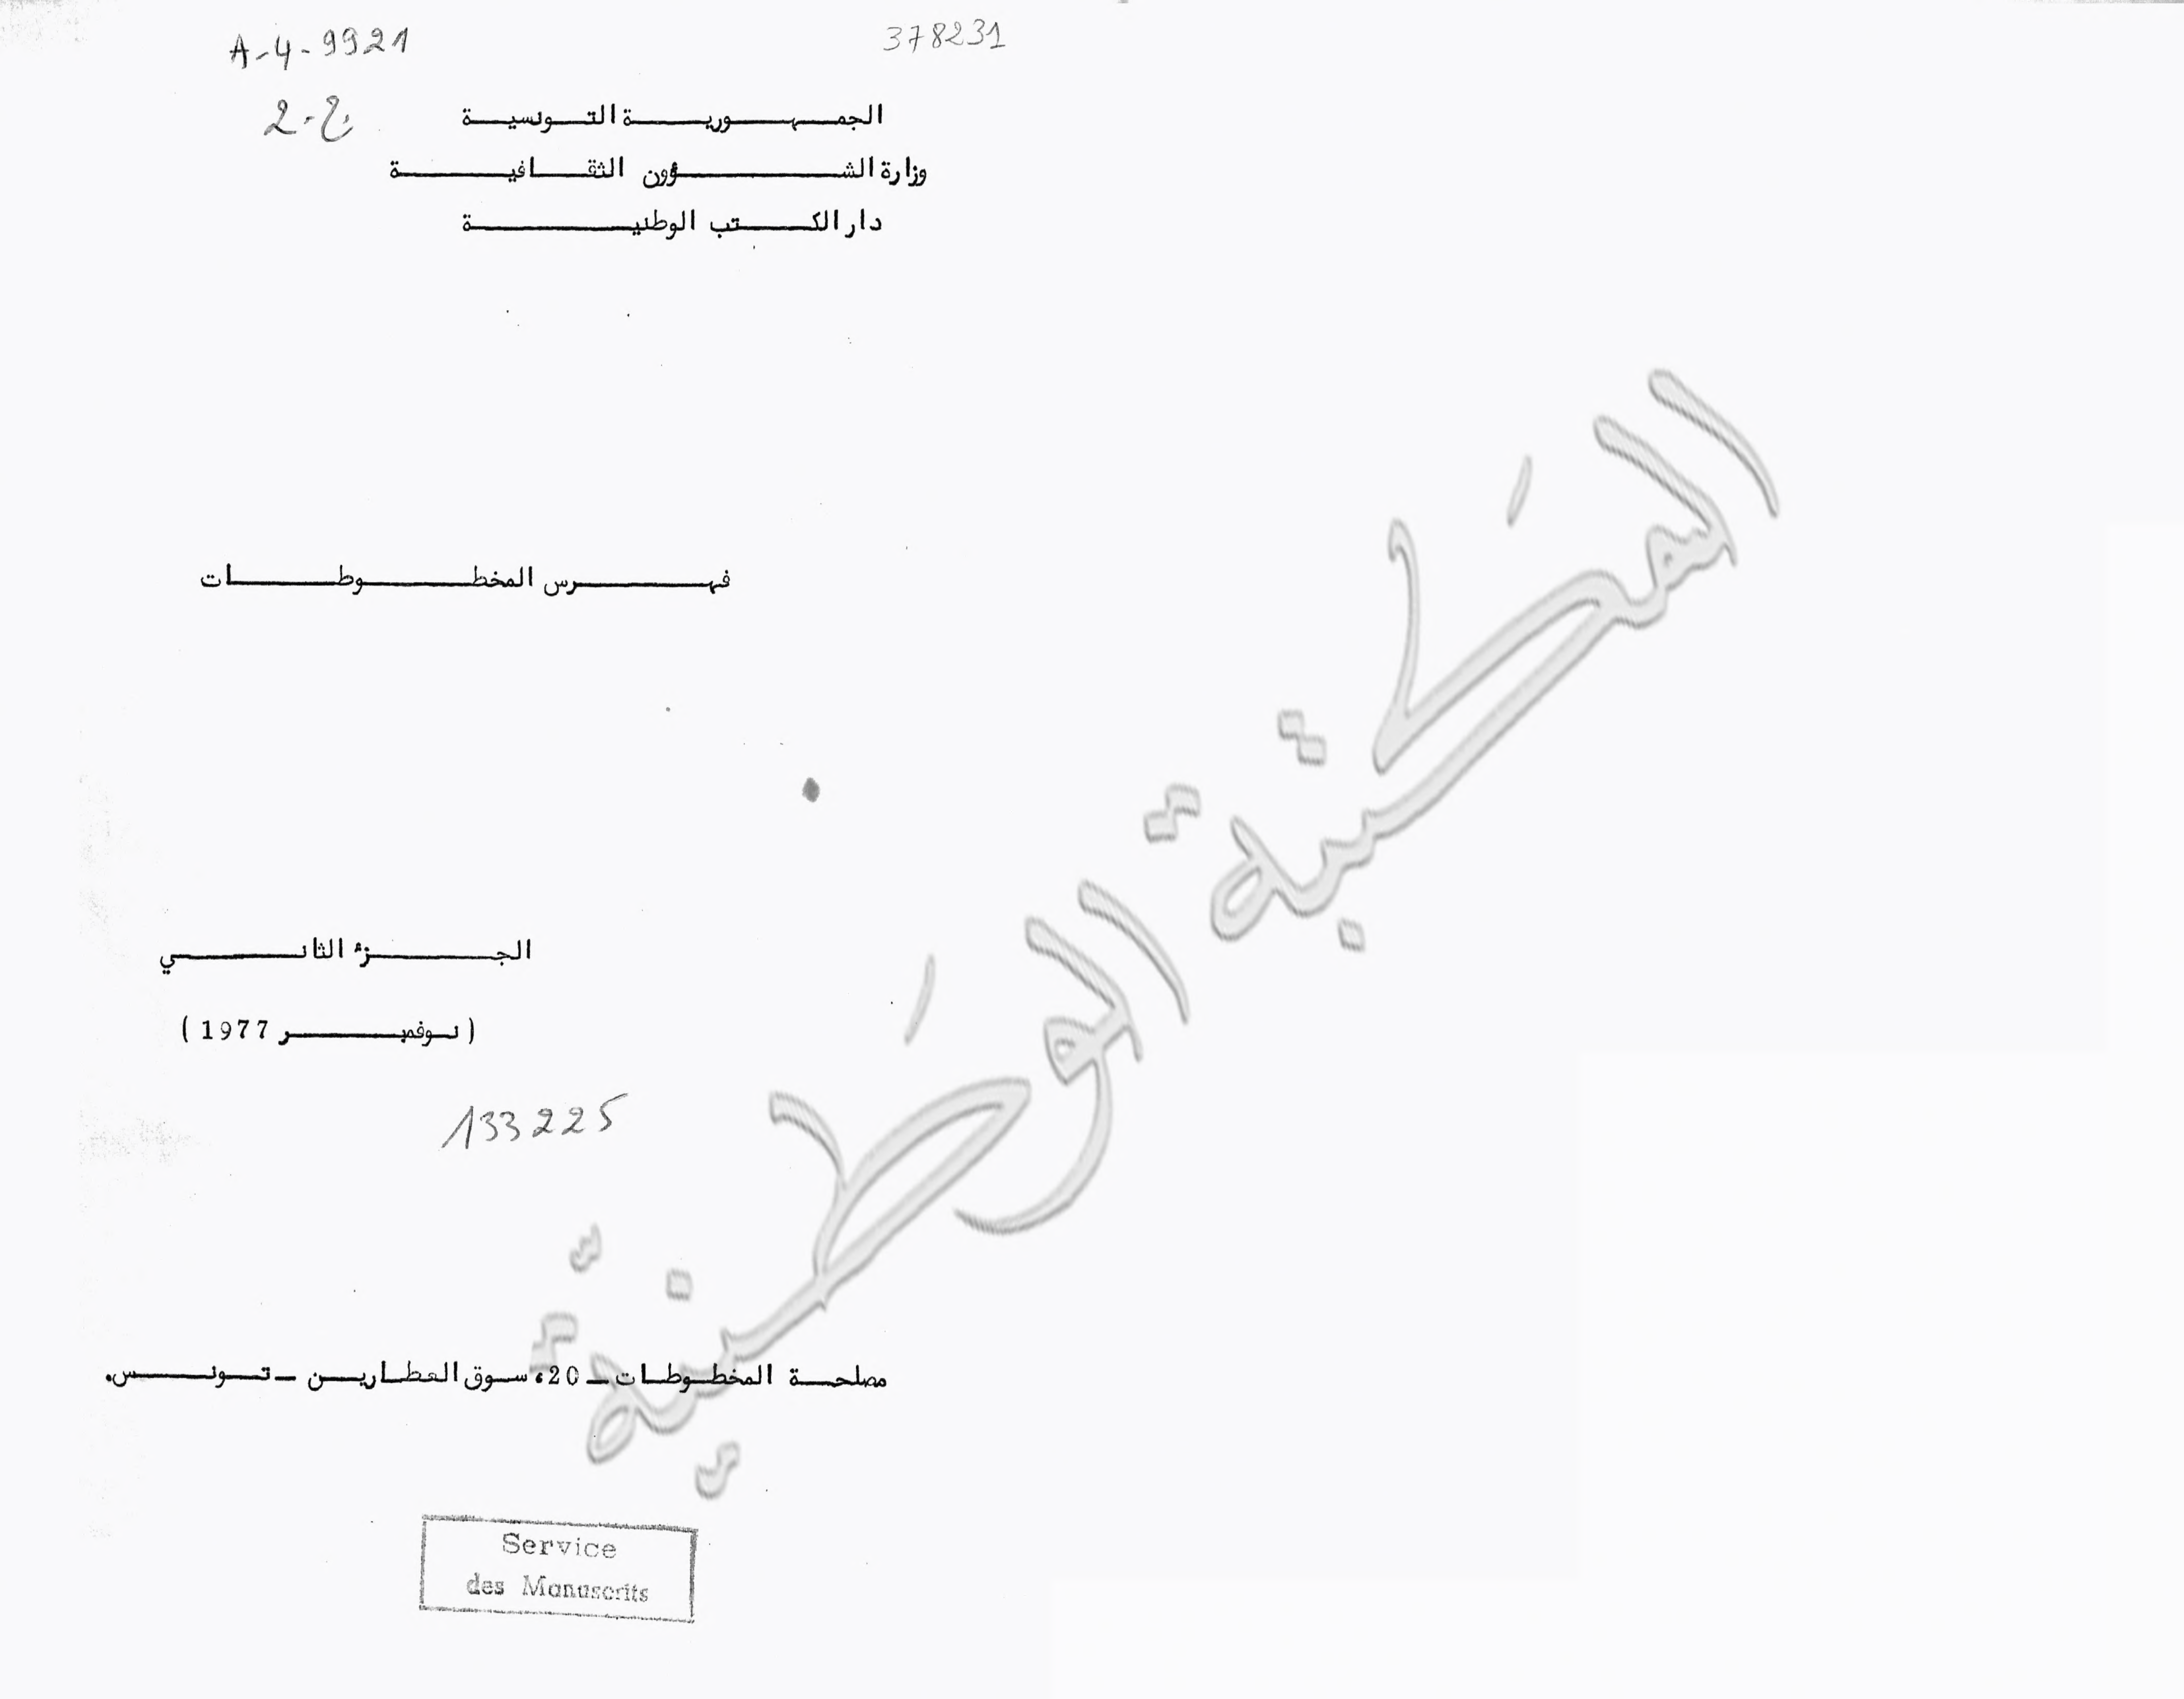 A-4-9921
378231
ج.2
الجمهورية التونسية
وزارة الشؤون الثقافية
دار الكتب الوطنية
فهرس المخطوطات
الجزء الثاني
(نوفمبر 1977)
133225
مصلحة المخطوطات - 20، سوق العطارين - تونس.
المكتبة الوطنية
Service
des Manuscrits